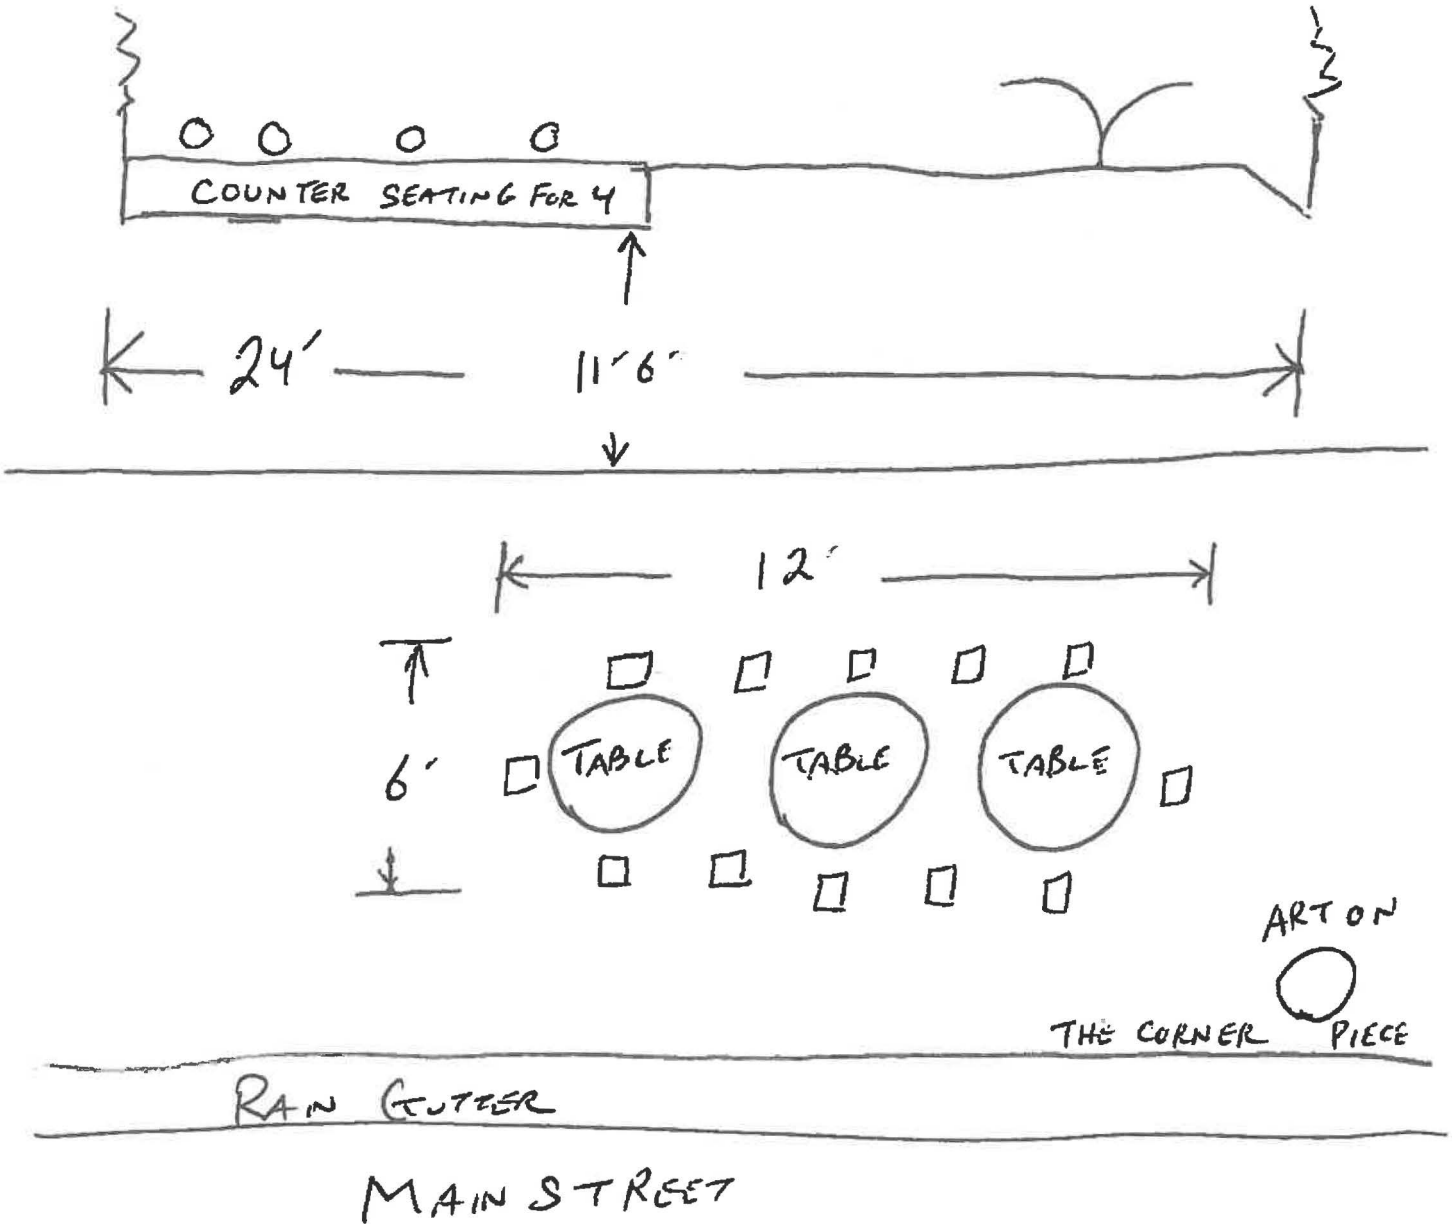 COUNTER SEATING FOR 4
24'
11'6"
12'
6'
TABLE TABLE TABLE
ART ON
THE CORNER PIECE
RAIN GUTTER
MAIN STREET